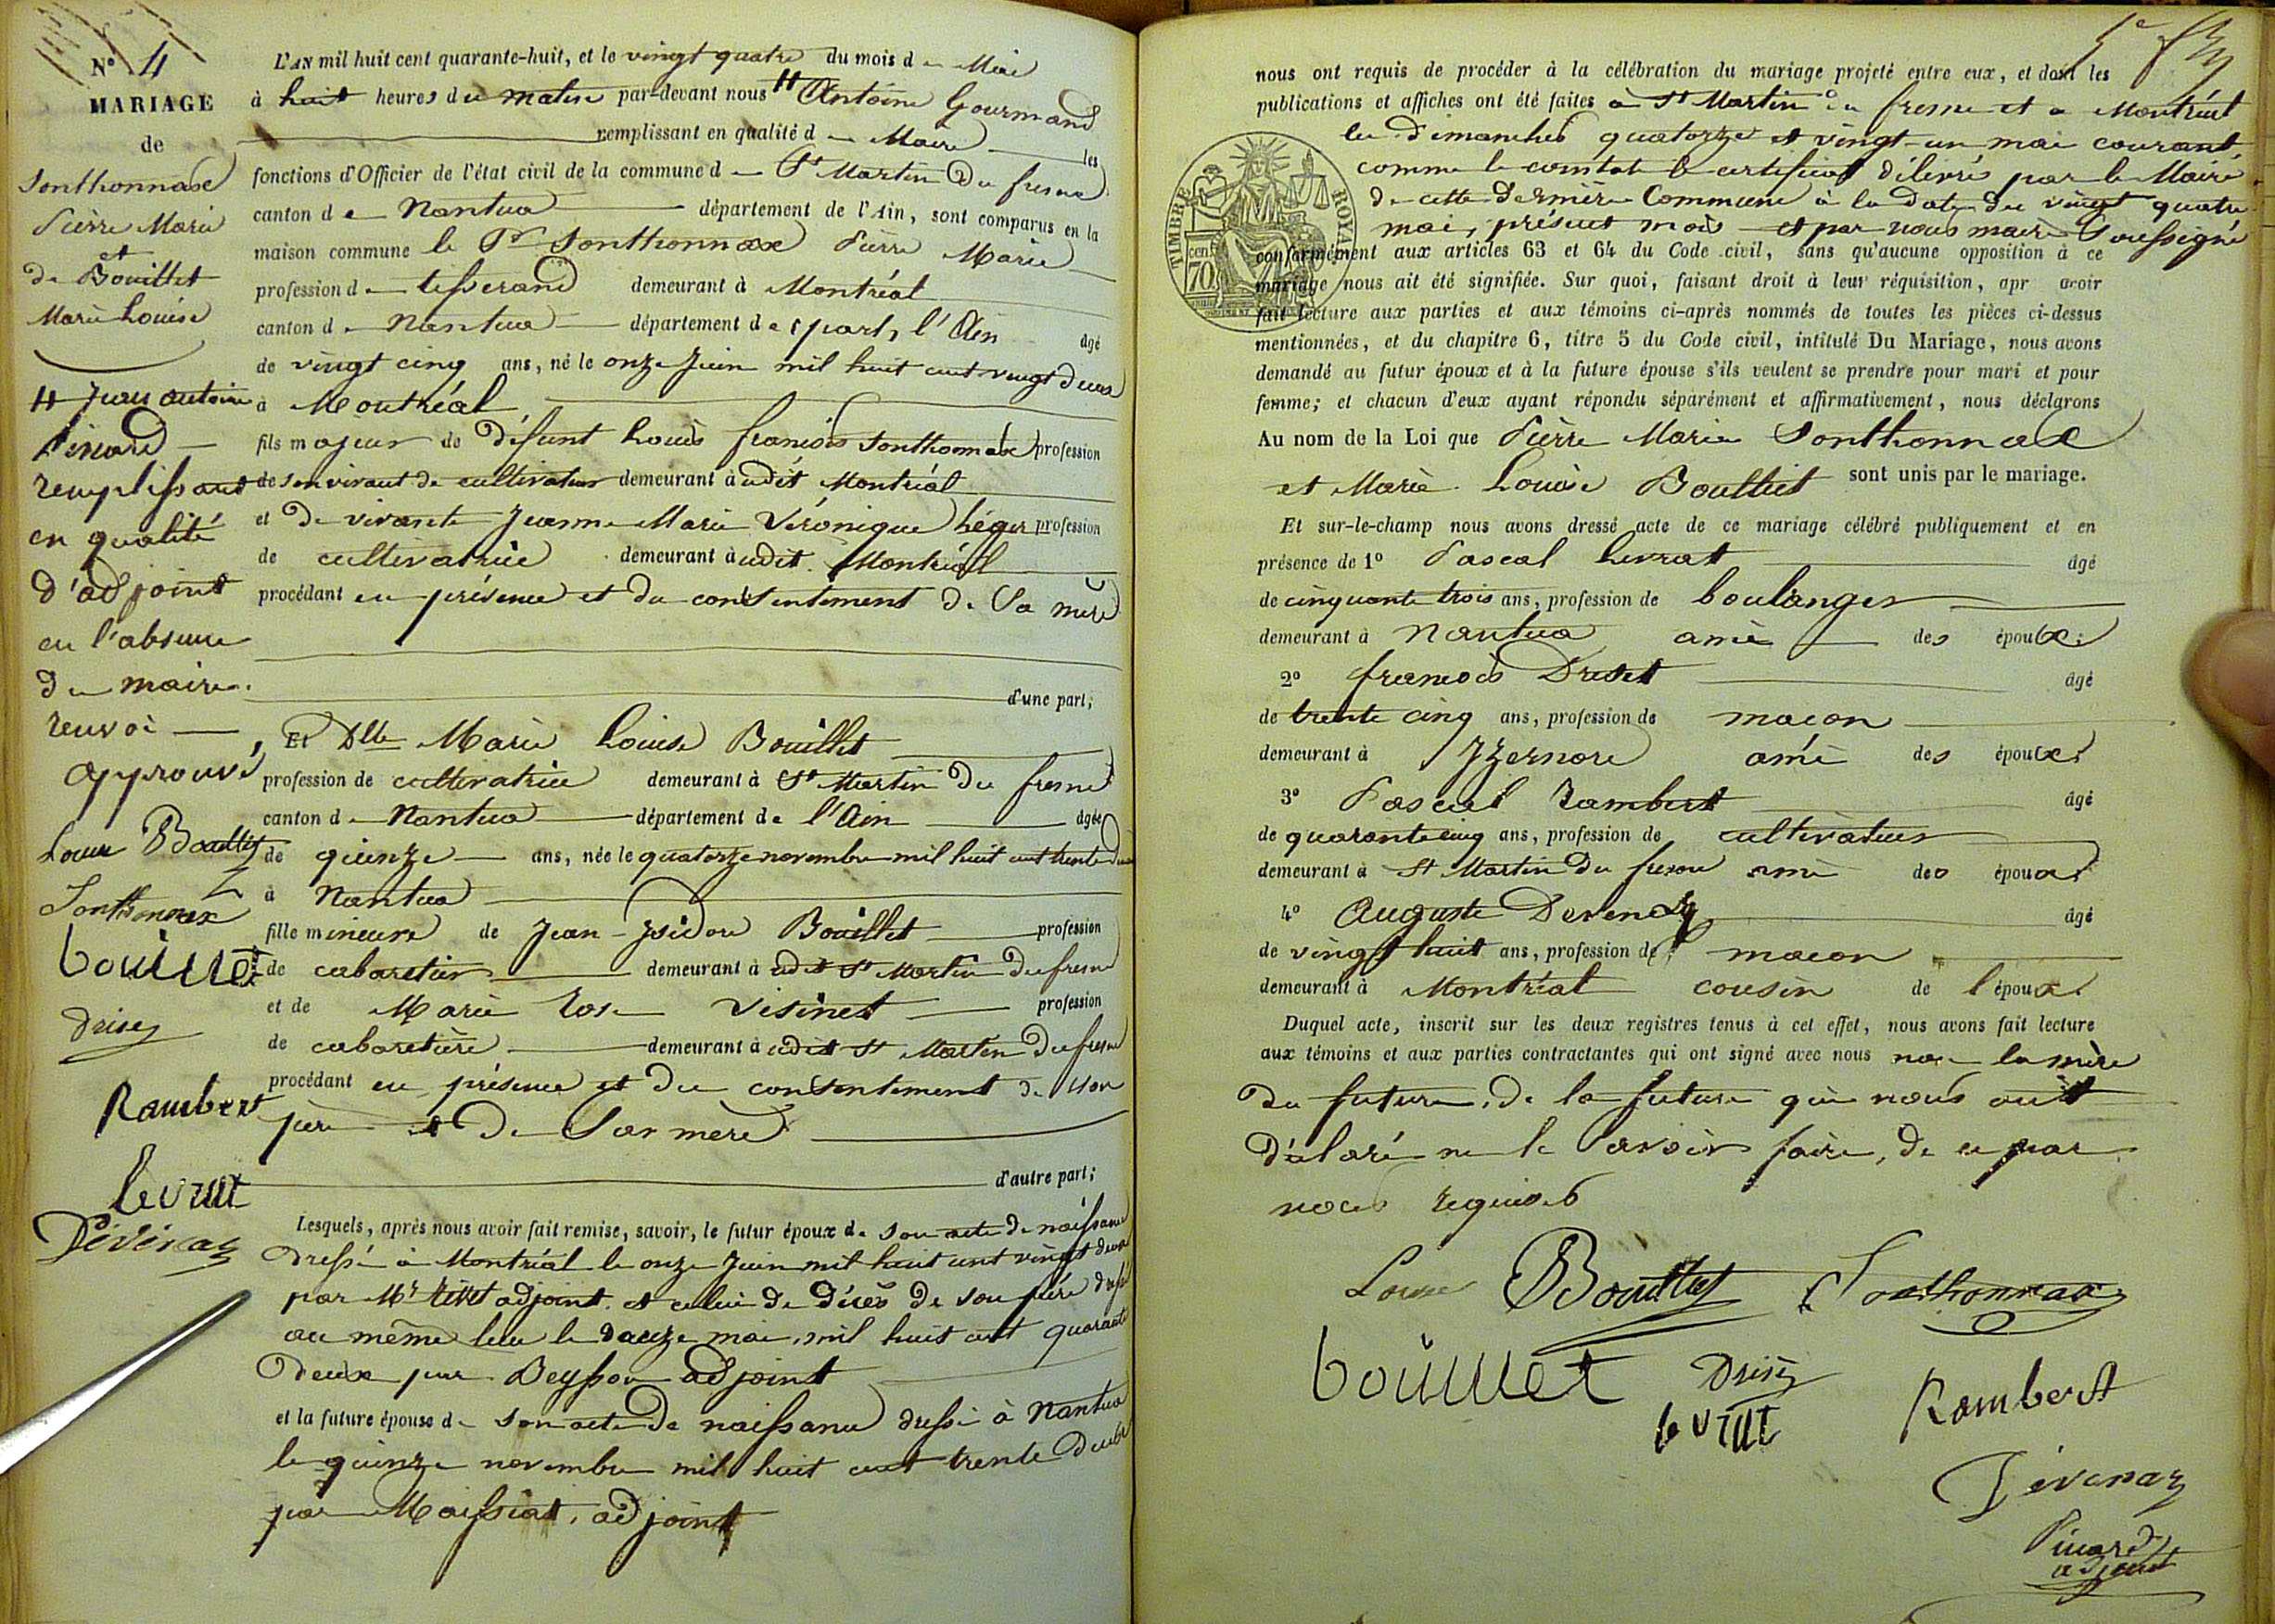 N° 4
MARIAGE
de
Sonthonnax
Pierre Marie
et
de Bouillet
Marie Louise
H Jean antoine
Pinard
remplissant
en qualité
d'adjoint
en l'absence
du maire.
renvoi
approuvé
Louise Bouillet
Sonthonnax
bouillet
Drisey
Rambert
levrat
Dévenaz
L'AN mil huit cent quarante-huit, et le vingt quatre du mois de Mai
à huit heures du matin par-devant nous H Antoine Gourmand
remplissant en qualité de Maire les
fonctions d'Officier de l'état civil de la commune de St Martin du fresne
canton de Nantua département de l'Ain, sont comparus en la
maison commune le Sr Sonthonnax Pierre Marie
profession de tisserand demeurant à Montréal
canton de Nantua département de l'Ain âgé
de vingt cinq ans, né le onze Juin mil huit cent vingt deux
à Montréal
fils majeur de défunt Louis françois Sonthonnax profession
de son vivant de cultivateur demeurant à udit Montréal
et de vivante Jeanne Marie Véronique Léger profession
de cultivatrice demeurant à udit Montréal
procédant en présence et du consentement de Sa mère
d'une part;
Et Dlle Marie Louise Bouillet
profession de cultivatrice demeurant à St Martin du fresne
canton de Nantua département de l'Ain âgée
de quinze ans, née le quatorze novembre mil huit cent trente deux
à Nantua
fille mineure de Jean-Isidore Bouillet profession
de cabaretier demeurant à udit St Martin du fresne
et de Marie Rose Visinet profession
de cabaretière demeurant à udit St Martin du fresne
procédant en présence et du consentement de son
père et de Sa mère
d'autre part;
Lesquels, après nous avoir fait remise, savoir, le futur époux de son acte de naissance
dressé à Montréal le onze Juin mil huit cent vingt deux
par Mr adjoint et celui de décès de son père dressé
au même lieu le douze mai mil huit cent quarante
deux par Beysson adjoint
et la future épouse de son acte de naissance dressé à Nantua
le quinze novembre mil huit cent trente deux
par Maissiat, adjoint
nous ont requis de procéder à la célébration du mariage projeté entre eux, et dont les
publications et affiches ont été faites à St Martin du fresne et à Montréal
les dimanches quatorze et vingt-un mai courant
comme le constate le certificat délivré par le Maire
de cette dernière Commune à la date du vingt quatre
mai, présent mois et par nous maire Soussigné
TIMBRE ROYAL
70 cen
conformément aux articles 63 et 64 du Code civil, sans qu'aucune opposition à ce
mariage nous ait été signifiée. Sur quoi, faisant droit à leur réquisition, apr avoir
fait lecture aux parties et aux témoins ci-après nommés de toutes les pièces ci-dessus
mentionnées, et du chapitre 6, titre 5 du Code civil, intitulé Du Mariage, nous avons
demandé au futur époux et à la future épouse s'ils veulent se prendre pour mari et pour
femme; et chacun d'eux ayant répondu séparément et affirmativement, nous déclarons
Au nom de la Loi que Pierre Marie Sonthonnax
et Marie Louise Bouillet sont unis par le mariage.
Et sur-le-champ nous avons dressé acte de ce mariage célébré publiquement et en
présence de 1° Pascal Levrat âgé
de cinquante trois ans, profession de boulanger
demeurant à Nantua ami des époux
2° françois Driset âgé
de trente cinq ans, profession de macon
demeurant à Izernore ami des époux
3° Pascal Rambert âgé
de quarante cinq ans, profession de cultivateur
demeurant à St Martin du fresne ami des époux
4° Auguste Devenaz âgé
de vingt huit ans, profession de macon
demeurant à Montréal cousin de l'époux
Duquel acte, inscrit sur les deux registres tenus à cet effet, nous avons fait lecture
aux témoins et aux parties contractantes qui ont signé avec nous non la mère
du futur, de la future qui nous ont
déclaré ne le savoir faire, de ce par
nous requises
Louise Bouillet Sonthonnax
bouillet Drisey Rambert
levrat
Dévenaz
Pinard
adjoint